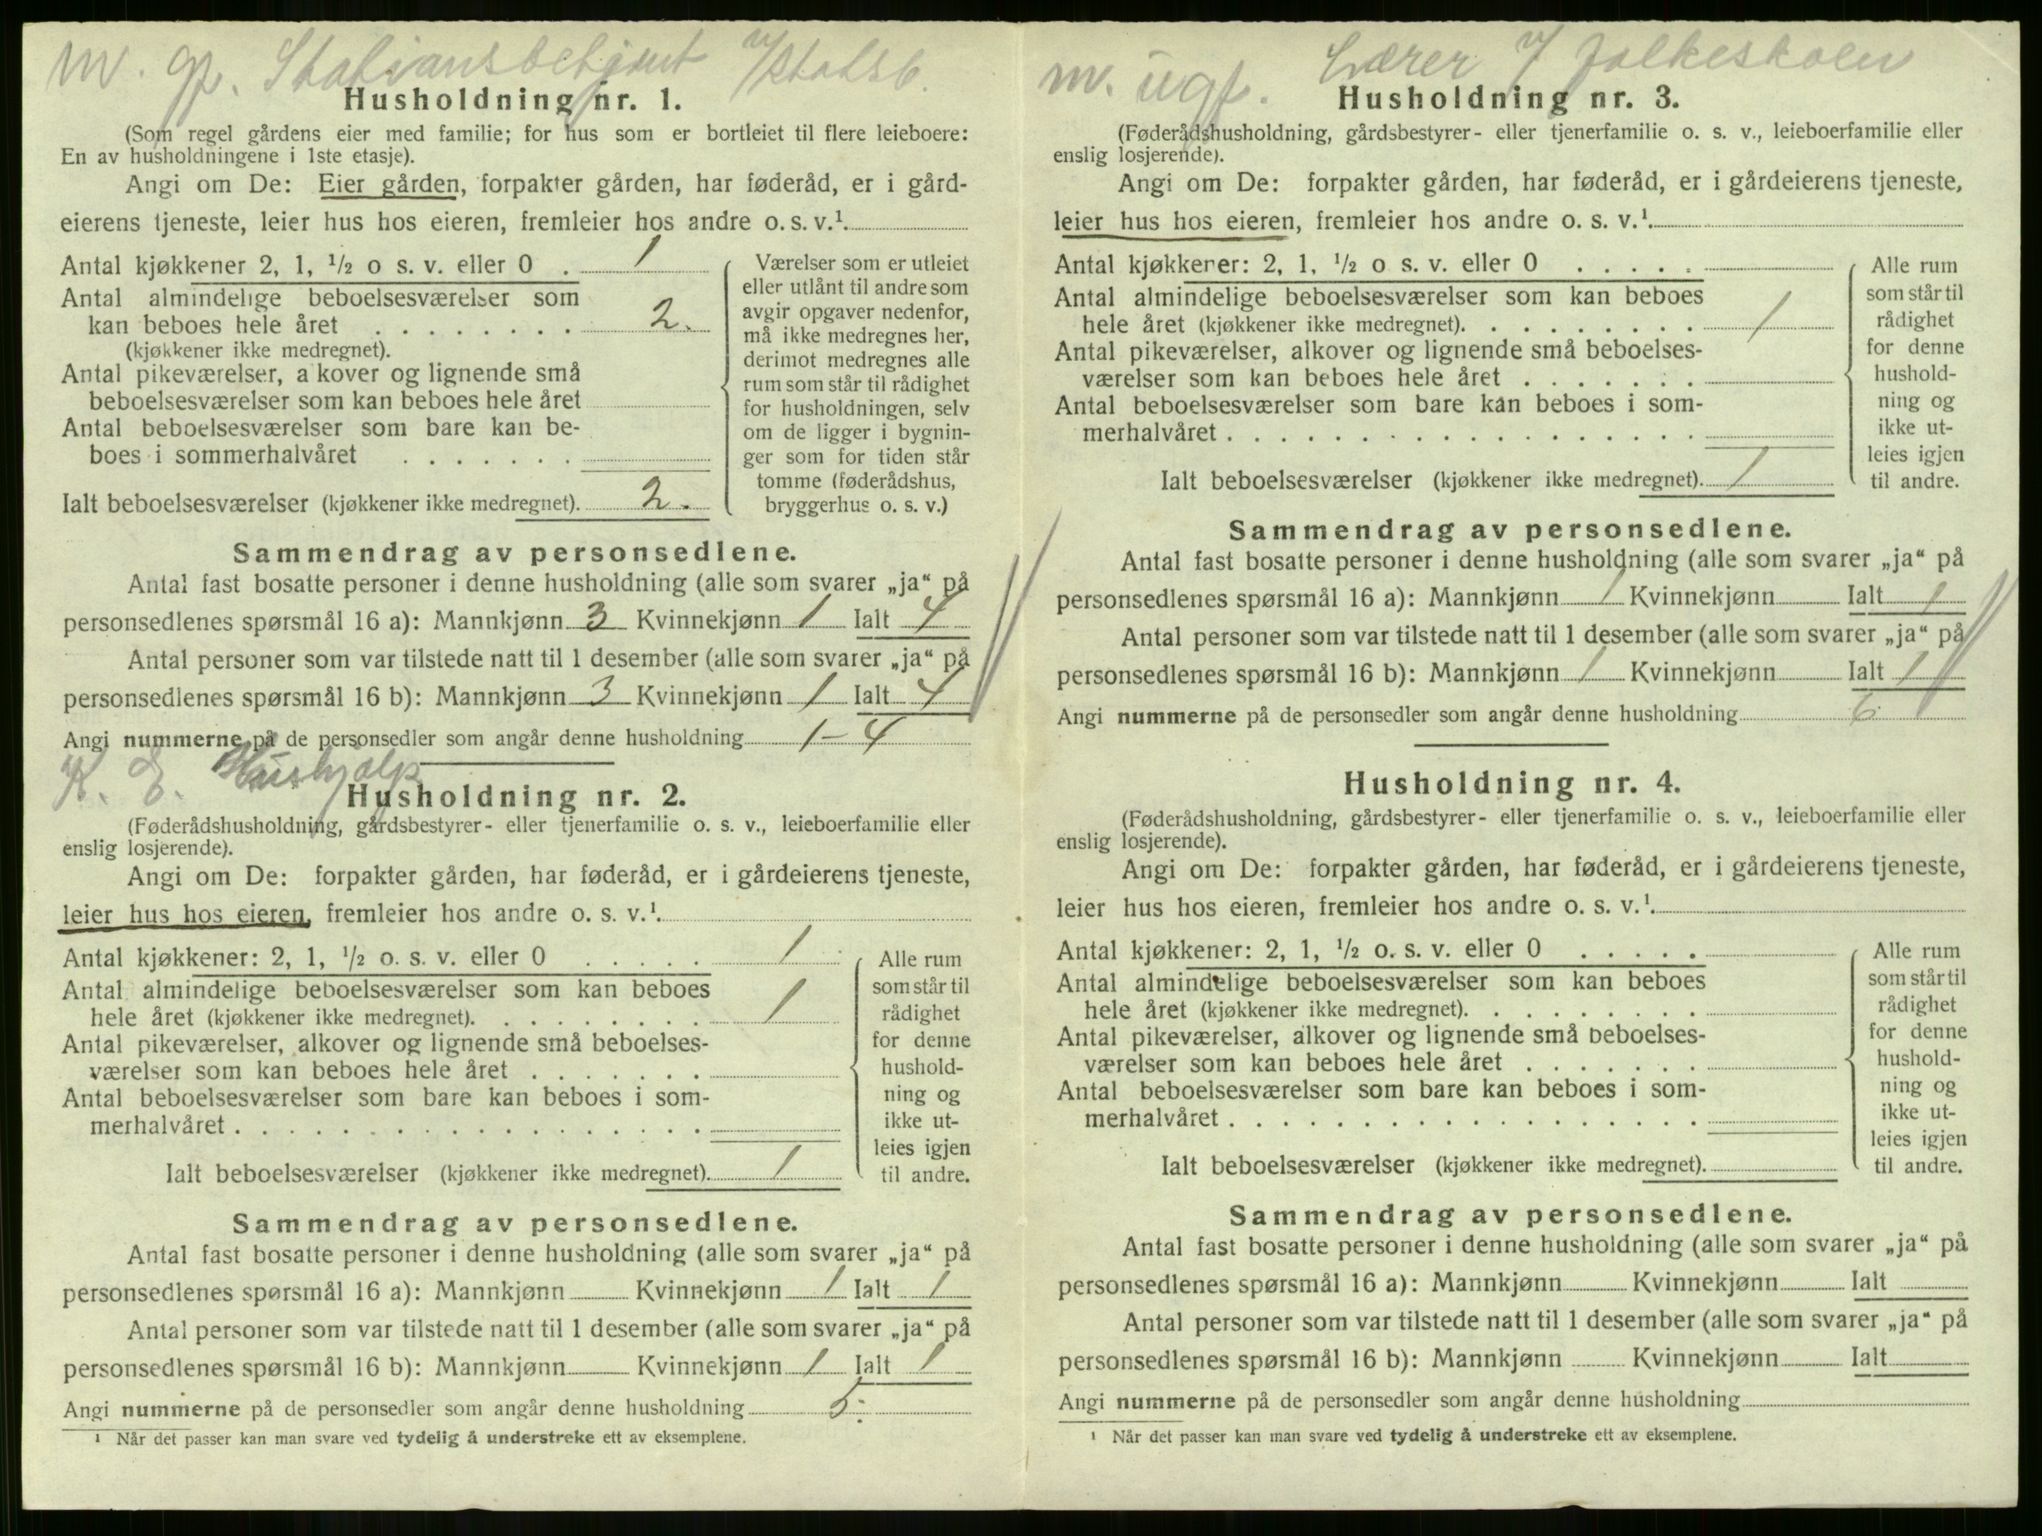 m. gp. Stationsbetjent v/Statsb.
Husholdning nr. 1.
(Som regel gårdens eier med familie; for hus som er bortleiet til flere leieboere:
En av husholdningene i 1ste etasje).
Angi om De: Eier gården, forpakter gården, har føderåd, er i gård-
eierens tjeneste, leier hus hos eieren, fremleier hos andre o. s. v.¹.
Antal kjøkkener 2, 1, ½ o s. v. eller 0 . 1
Antal almindelige beboelsesværelser som
kan beboes hele året . . . . . . . . 2.
(kjøkkener ikke medregnet).
Antal pikeværelser, a kover og lignende små
beboelsesværelser som kan beboes hele året
Antal beboelsesværelser som bare kan be-
boes i sommerhalvåret . . . . . . .
Ialt beboelsesværelser (kjøkkener ikke medregnet). 2.
Værelser som er utleiet
eller utlånt til andre som
avgir opgaver nedenfor,
må ikke medregnes her,
derimot medregnes alle
rum som står til rådighet
for husholdningen, selv
om de ligger i bygnin-
ger som for tiden står
tomme (føderådshus,
bryggerhus o. s. v.)
Sammendrag av personsedlene.
Antal fast bosatte personer i denne husholdning (alle som svarer „ja“ på
personsedlenes spørsmål 16 a): Mannkjønn 3 Kvinnekjønn 1 Ialt 4
Antal personer som var tilstede natt til 1 desember (alle som svarer „ja“ på
personsedlenes spørsmål 16 b): Mannkjønn 3 Kvinnekjønn 1 Ialt 4
Angi nummerne på de personsedler som angår denne husholdning 1-4
K. E. Hushjælp
Husholdning nr. 2.
(Føderådshusholdning, gårdsbestyrer- eller tjenerfamilie o. s. v., leieboerfamilie eller
enslig losjerende).
Angi om De: forpakter gården, har føderåd, er i gårdeierens tjeneste,
leier hus hos eieren, fremleier hos andre o. s. v.¹.
Antal kjøkkener: 2, 1, ½ o. s. v. eller 0 . . . . . 1
Antal almindelige beboelsesværelser som kan beboes
hele året (kjøkkener ikke medregnet). . . . . . . . . 1
Antal pikeværelser, alkover og lignende små beboelses-
værelser som kan beboes hele året . . . . . . .
Antal beboelsesværelser som bare kan beboes i som-
merhalvåret . . . . . . . . . . . . . . . . . .
Ialt beboelsesværelser (kjøkkener ikke medregnet). 1
Alle rum
som står til
rådighet
for denne
hushold-
ning og
ikke ut-
leies igjen
til andre.
Sammendrag av personsedlene.
Antal fast bosatte personer i denne husholdning (alle som svarer „ja“ på
personsedlenes spørsmål 16 a): Mannkjønn Kvinnekjønn 1 Ialt 1
Antal personer som var tilstede natt til 1 desember (alle som svarer „ja“ på
personsedlenes spørsmål 16 b): Mannkjønn Kvinnekjønn 1 Ialt 1
Angi nummerne på de personsedler som angår denne husholdning 5.
¹ Når det passer kan man svare ved tydelig å understreke ett av eksemplene.
m. ugf. Lærer v/ folkeskolen
Husholdning nr. 3.
(Føderådshusholdning, gårdsbestyrer- eller tjenerfamilie o. s. v., leieboerfamilie eller
enslig losjerende).
Angi om De: forpakter gården, har føderåd, er i gårdeierens tjeneste,
leier hus hos eieren, fremleier hos andre o. s. v.¹.
Antal kjøkkener: 2, 1, ½ o s. v. eller 0 . . . . .
Antal almindelige beboelsesværelser som kan beboes
hele året (kjøkkener ikke medregnet). . . . . . . . . 1
Antal pikeværelser, alkover og lignende små beboelses-
værelser som kan beboes hele året . . . . . . .
Antal beboelsesværelser som bare kan beboes i som-
merhalvåret . . . . . . . . . . . . . . . . . .
Ialt beboelsesværelser (kjøkkener ikke medregnet). 1
Alle rum
som står til
rådighet
for denne
hushold-
ning og
ikke ut-
leies igjen
til andre.
Sammendrag av personsedlene.
Antal fast bosatte personer i denne husholdning (alle som svarer „ja“ på
personsedlenes spørsmål 16 a): Mannkjønn 1 Kvinnekjønn Ialt 1
Antal personer som var tilstede natt til 1 desember (alle som svarer „ja“ på
personsedlenes spørsmål 16 b): Mannkjønn 1 Kvinnekjønn Ialt 1
Angi nummerne på de personsedler som angår denne husholdning 6
Husholdning nr. 4.
(Føderådshusholdning, gårdsbestyrer- eller tjenerfamilie o. s. v., leieboerfamilie eller
enslig losjerende).
Angi om De: forpakter gården, har føderåd, er i gårdeierens tjeneste,
leier hus hos eieren, fremleier hos andre o. s. v.¹.
Antal kjøkkener: 2, 1, ½ o. s. v. eller 0 . . . . .
Antal almindelige beboelsesværelser som kan beboes
hele året (kjøkkener ikke medregnet). . . . . . . . .
Antal pikeværelser, alkover og lignende små beboelses-
værelser som kan beboes hele året . . . . . . .
Antal beboelsesværelser som bare kan beboes i som-
merhalvåret . . . . . . . . . . . . . . . . . .
Ialt beboelsesværelser (kjøkkener ikke medregnet).
Alle rum
som står til
rådighet
for denne
hushold-
ning og
ikke ut-
leies igjen
til andre.
Sammendrag av personsedlene.
Antal fast bosatte personer i denne husholdning (alle som svarer „ja“ på
personsedlenes spørsmål 16 a): Mannkjønn Kvinnekjønn Ialt
Antal personer som var tilstede natt til 1 desember (alle som svarer „ja“ på
personsedlenes spørsmål 16 b): Mannkjønn Kvinnekjønn Ialt
Angi nummerne på de personsedler som angår denne husholdning
¹ Når det passer kan man svare ved tydelig å understreke ett av eksemplene.